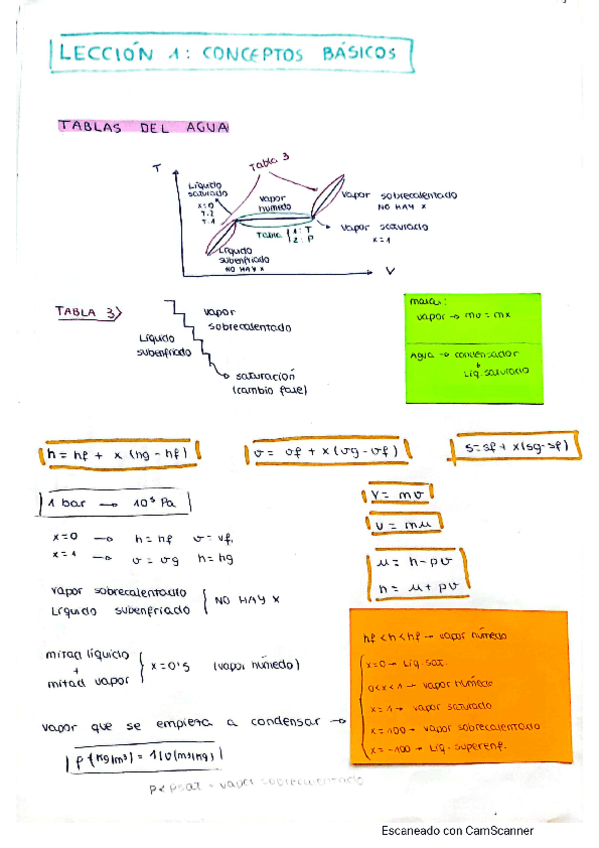 LECCIÓN 1: CONCEPTOS BÁSICOS
TABLAS DEL AGUA
T
Tabla 3
Líquido
saturado
x=0
T.2
T.1
vapor
húmedo
vapor sobrecalentado
NO HAY X
Tabla { 1: T
2: P
vapor saturado
x=1
Líquido
subenfriado
NO HAY X
V
TABLA 3
vapor
sobrecalentado
Líquido
subenfriado
saturación
(cambio fase)
masa:
vapor → mv = mx
Agua → condensador
↓
Líq. saturado
h = hf + x (hg - hf)
v = vf + x (vg - vf)
s = sf + x (sg - sf)
1 bar → 10⁵ Pa
V = mv
U = mu
x=0 → h = hf v = vf.
x=1 → v = vg h = hg
u = h - pv
h = u + pv
vapor sobrecalentado
Líquido subenfriado { NO HAY X
mitad líquido
+
mitad vapor { x = 0'5 (vapor húmedo)
vapor que se empieza a condensar →
hf < h < hf → vapor húmedo
x=0 → Líq. sat.
0<x<1 → vapor húmedo
x = 1 → vapor saturado
x = 100 → vapor sobrecalentado
x = -100 → Líq. superenf.
ρ (kg/m³) = 1/v (m³/kg)
p < psat → vapor sobrecalentado
Escaneado con CamScanner